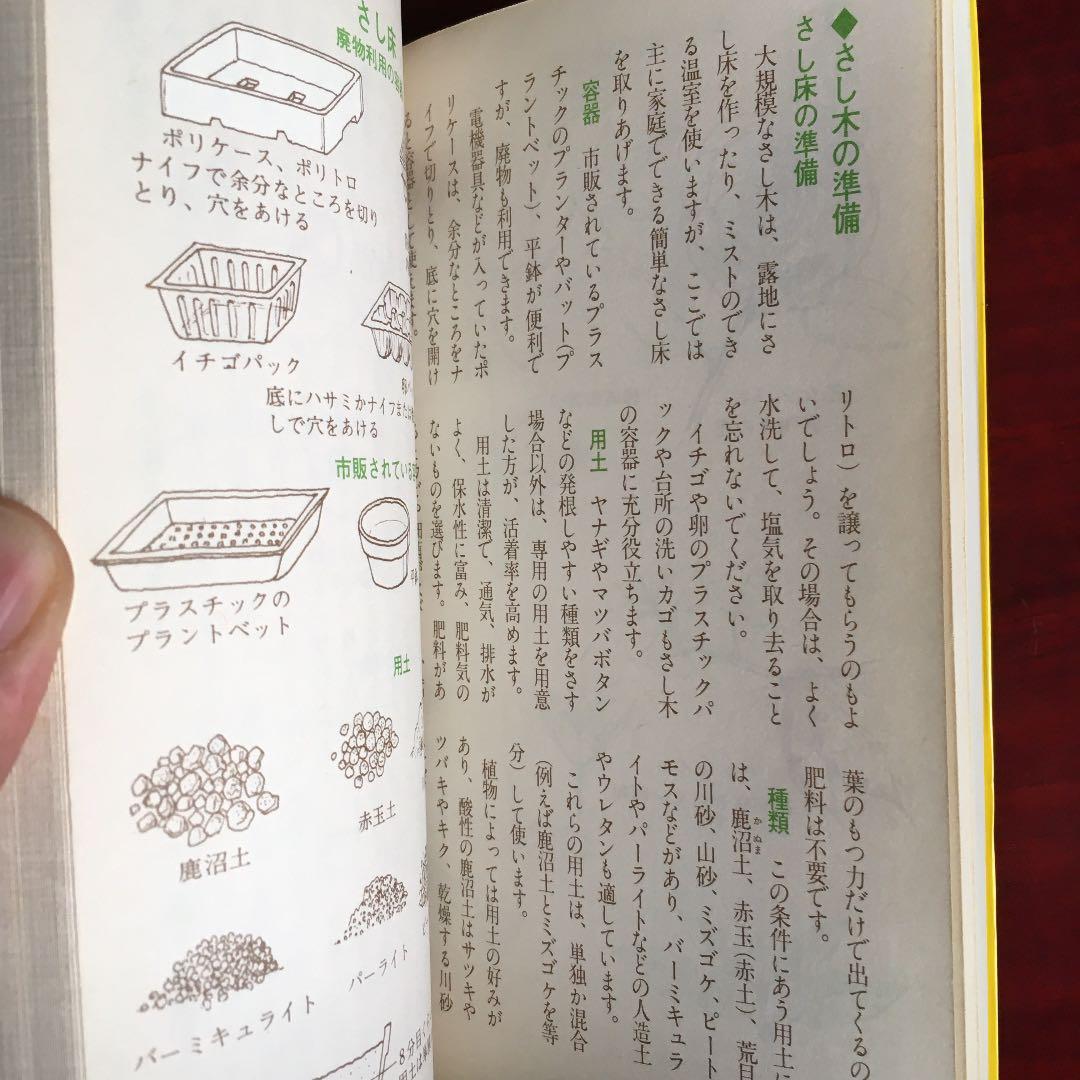 ◆さし木の準備
さし床の準備
大規模なさし木は、露地にさ
し床を作ったり、ミストのでき
る温室を使いますが、ここでは
主に家庭でできる簡単なさし床
を取りあげます。
容器 市販されているプラス
チックのプランターやバット(プ
ラントベット)、平鉢が便利で
すが、廃物も利用できます。
電機器具などが入っていたポ
リケースは、余分なところをナ
イフで切りとり、底に穴を開け
リトロ)を譲ってもらうのもよ
いでしょう。その場合は、よく
水洗して、塩気を取り去ること
を忘れないでください。
イチゴや卵のプラスチックパ
ックや台所の洗いカゴもさし木
の容器に充分役立ちます。
用土 ヤナギやマツバボタン
などの発根しやすい種類をさす
場合以外は、専用の用土を用意
した方が、活着率を高めます。
用土は清潔で、通気、排水が
よく、保水性に富み、肥料気の
ないものを選びます。肥料があ
葉のもつ力だけで出てくるの
肥料は不要です。
種類 この条件にあう用土に
は、鹿沼土、赤玉(赤土)、荒目
かぬま
の川砂、山砂、ミズゴケ、ピート
モスなどがあり、バーミキュラ
イトやパーライトなどの人造土
やウレタンも適しています。
これらの用土は、単独か混合
(例えば鹿沼土とミズゴケを等
分)して使います。
植物によっては用土の好みが
あり、酸性の鹿沼土はサツキや
ツバキやキク、乾燥する川砂
さし床
廃物利用の
ポリケース、ポリトロ
ナイフで余分なところを切り
とり、穴をあける
イチゴパック
底にハサミかナイフまた
しで穴をあける
市販されている
プラスチックの
プラントベット
用土
鹿沼土
赤玉土
バーミキュライト
パーライト
8分目
用土